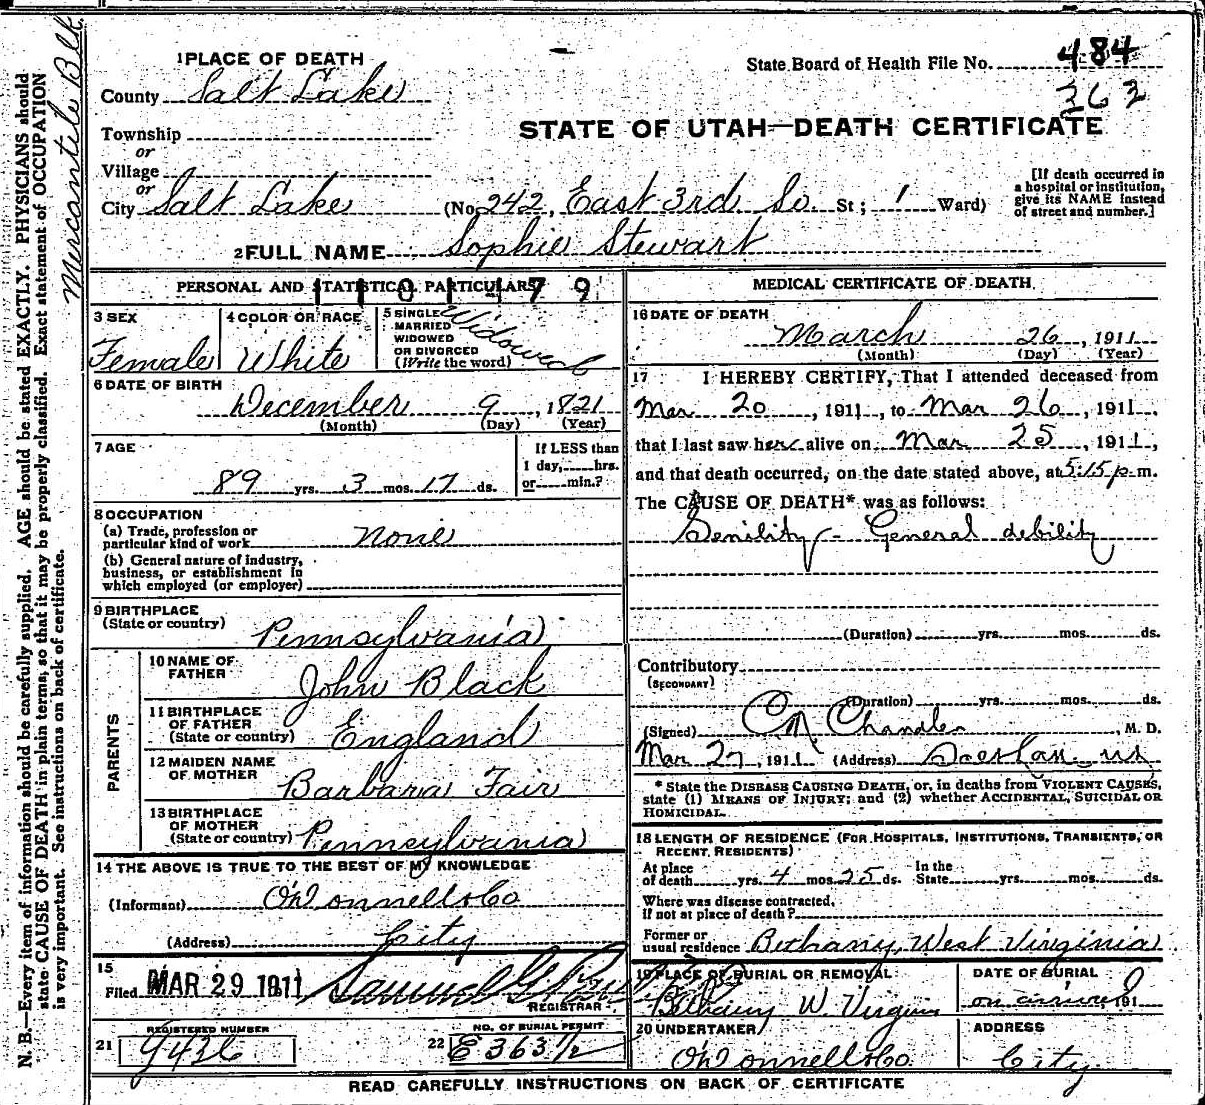 Mercantile Blk
N. B.—Every item of information should be carefully supplied. AGE should be stated EXACTLY. PHYSICIANS should
state CAUSE OF DEATH in plain terms, so that it may be properly classified. Exact statement of OCCUPATION
is very important. See instructions on back of certificate.
1 PLACE OF DEATH
State Board of Health File No. 484
263
County Salt Lake
STATE OF UTAH—DEATH CERTIFICATE
Township
or
Village
or
City Salt Lake (No. 242, East 3rd So. St; 1 Ward)
[If death occurred in
a hospital or institution,
give its NAME instead
of street and number.]
2 FULL NAME Sophie Stewart
PERSONAL AND STATISTICAL PARTICULARS
1101179
3 SEX
Female
4 COLOR OR RACE
White
5 SINGLE
MARRIED
WIDOWED
OR DIVORCED
(Write the word)
Widowed
6 DATE OF BIRTH
December 9, 1821
(Month) (Day) (Year)
7 AGE
89 yrs. 3 mos. 17 ds.
If LESS than
1 day, hrs.
or min.?
8 OCCUPATION
(a) Trade, profession or
particular kind of work None
(b) General nature of industry,
business, or establishment in
which employed (or employer)
9 BIRTHPLACE
(State or country)
Pennsylvania
PARENTS
10 NAME OF
FATHER
John Black
11 BIRTHPLACE
OF FATHER
(State or country) England
12 MAIDEN NAME
OF MOTHER
Barbara Fair
13 BIRTHPLACE
OF MOTHER
(State or country) Pennsylvania
14 THE ABOVE IS TRUE TO THE BEST OF MY KNOWLEDGE
(Informant) O'Donnell & Co
(Address) City
15
Filed MAR 29 1911
REGISTRAR
REGISTERED NUMBER
21 9436
NO. OF BURIAL PERMIT
22 E 3637 1/2
MEDICAL CERTIFICATE OF DEATH
16 DATE OF DEATH
March 26, 1911
(Month) (Day) (Year)
17 I HEREBY CERTIFY, That I attended deceased from
Mar 20, 1911, to Mar 26, 1911,
that I last saw her alive on Mar 25, 1911,
and that death occurred, on the date stated above, at 5:15 p.m.
The CAUSE OF DEATH* was as follows:
Senility - General debility
(Duration) yrs. mos. ds.
Contributory
(SECONDARY)
(Duration) yrs. mos. ds.
(Signed) M. D.
Mar 27, 1911 (Address)
* State the DISEASE CAUSING DEATH, or, in deaths from VIOLENT CAUSES,
state (1) MEANS OF INJURY; and (2) whether ACCIDENTAL, SUICIDAL OR
HOMICIDAL.
18 LENGTH OF RESIDENCE (FOR HOSPITALS, INSTITUTIONS, TRANSIENTS, OR
RECENT RESIDENTS)
At place
of death yrs. 4 mos. 25 ds.
In the
State yrs. mos. ds.
Where was disease contracted,
if not at place of death?
Former or
usual residence Bethany, West Virginia
19 PLACE OF BURIAL OR REMOVAL
Bethany W. Virginia
DATE OF BURIAL
on arrival, 191
20 UNDERTAKER
O'Donnell & Co.
ADDRESS
City
READ CAREFULLY INSTRUCTIONS ON BACK OF CERTIFICATE